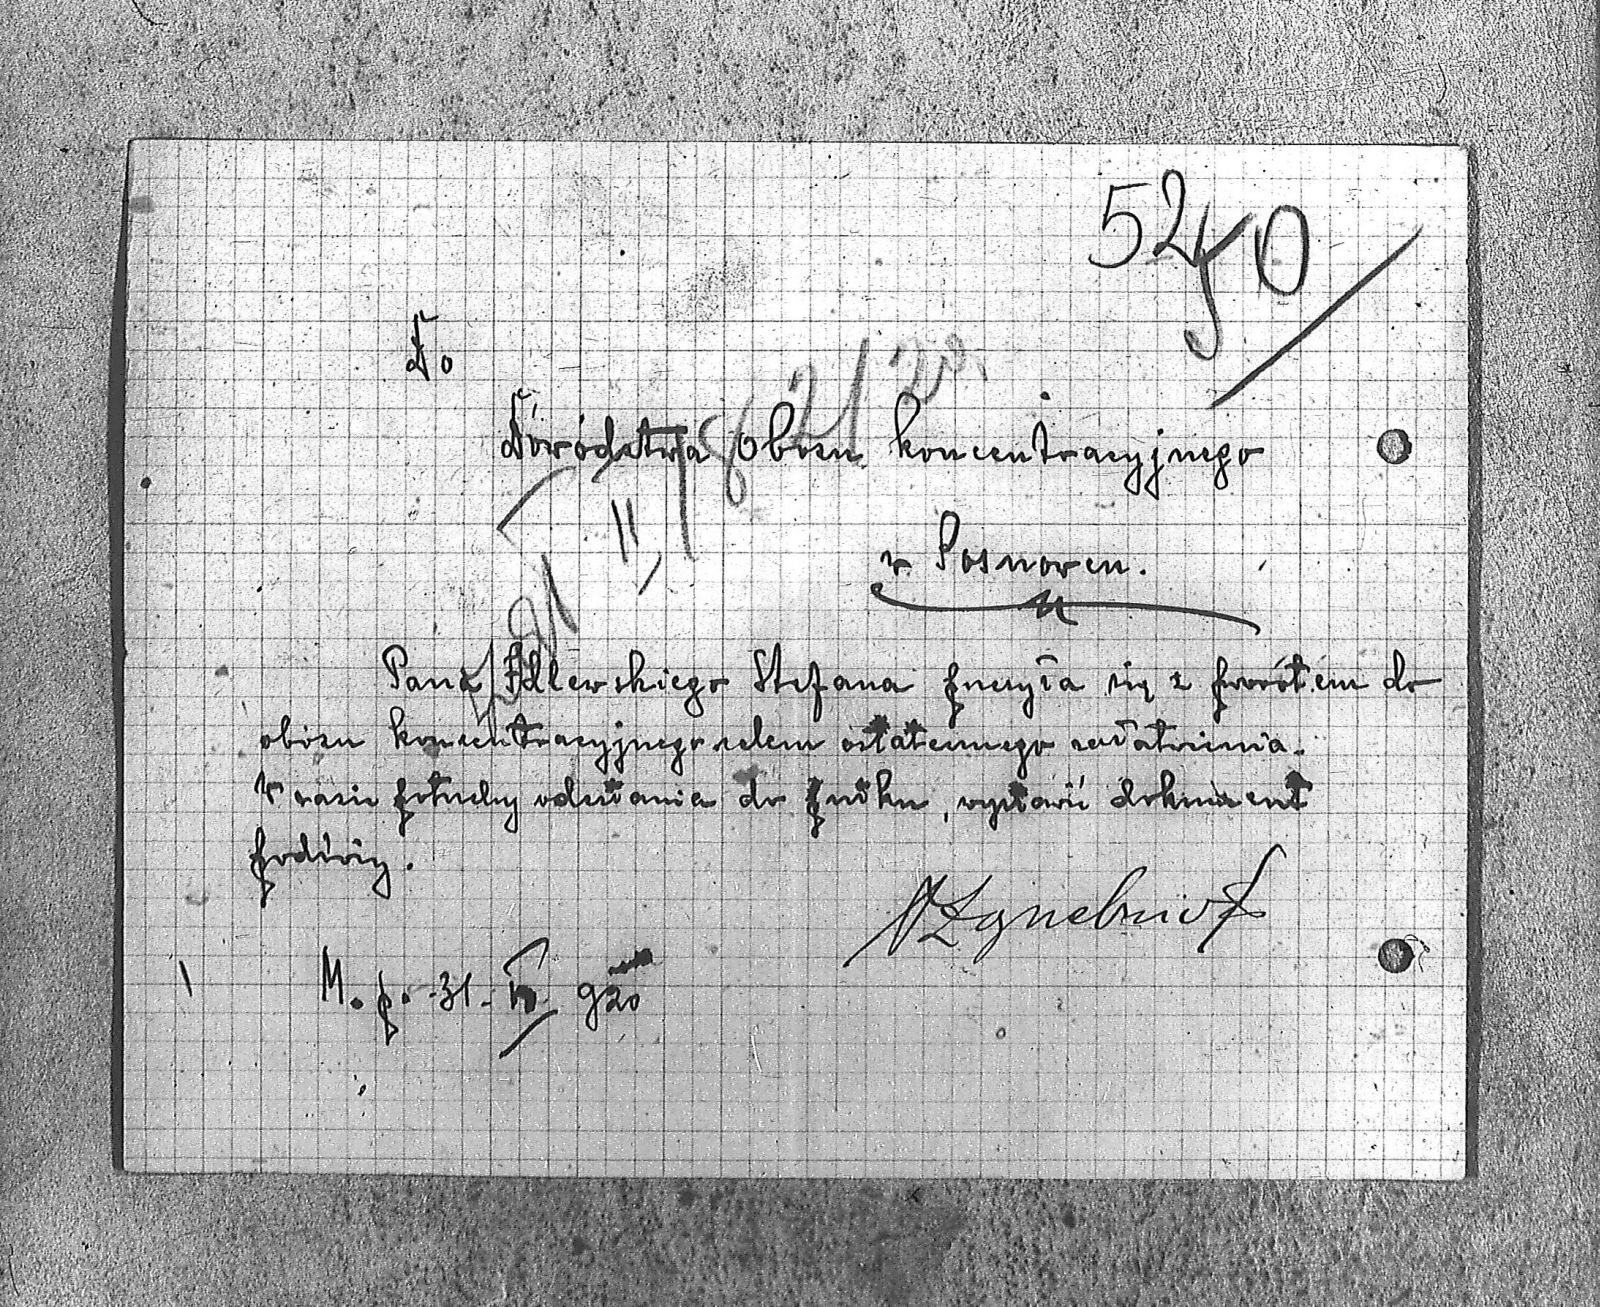 5250
Do
Dowództwa Obozu koncentracyjnego
w Posnowcu.
Pana Idlewskiego Stefana przesyła się z powrotem do
obozu koncentracyjnego celem ostatecznego załatwienia.
W razie potrzeby odesłania do pułku, wystawić dokument
podróży.
M. p. 31. 920